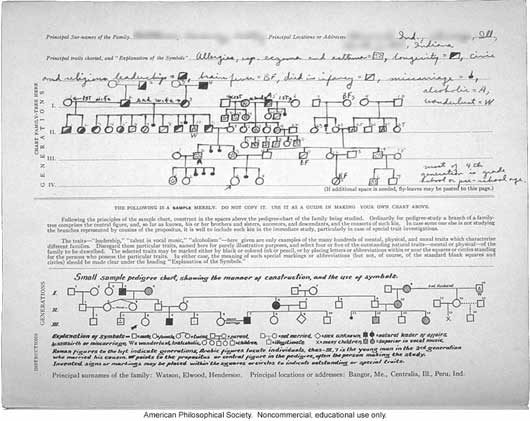 Principal Sur-names of the Family. Principal Locations or Addresses: Ind., Ill,
Indiana
Principal traits charted, and "Explanation of the Symbols" Allergies, esp. eczema and asthma = longevity = , civic
and religious leadership = , brain fever = BF, died in infancy = , miscarriage = ,
alcoholic = A,
wanderlust = W
CHART FAMILY-TREE HERE
GENERATIONS
I.
1st wife 2nd wife
A
BF
II.
W
III.
BF
BF
IV.
most of 4th
generation is grade
school or pre-school age.
(If additional space is needed, fly-leaves may be pasted to this page.)
THE FOLLOWING IS A SAMPLE MERELY. DO NOT COPY IT. USE IT AS A GUIDE IN MAKING YOUR OWN CHART ABOVE.
Following the principles of the sample chart, construct in the spaces above the pedigree-chart of the family being studied. Ordinarily for pedigree-study a branch of a family-
tree comprises the central figure, and, so far as known, his or her brothers and sisters, ancestors, and descendants, and the consorts of such kin. In case some one else is not studying
the branches represented by cousins of the propositus, it is well to include such kin in the immediate study, particularly in case of special trait investigations.
The traits—"leadership," "talent in vocal music," "alcoholism"—here given are only examples of the many hundreds of mental, physical, and moral traits which characterize
different families. Disregard these particular traits, named here for purely illustrative purposes, and select four or five of the outstanding natural traits—mental or physical—of the
family to be described. The selected traits may be marked either by black or colored ink or pencil, or by placing letters or abbreviations within or near the squares or circles standing
for the persons who possess the particular traits. In either case, the meaning of such special markings or abbreviations (but not, of course, of the standard blank squares and
circles) should be made clear under the heading "Explanation of the Symbols."
Small sample pedigree chart, showing the manner of construction, and the use of symbols.
GENERATIONS
I.
2nd Husband
II.
III.
INSTRUCTIONS
Roman figures to the left indicate generations; Arabic figures locate individuals, thus - III, 7 is the young man in the 3rd generation
who married his cousin. points to the propositus or central figure in the pedigree, often the person making the study.
Invented signs or markings may be placed within the squares or circles to indicate outstanding or special traits.
Principal surnames of the family: Watson, Elwood, Henderson. Principal locations or addresses: Bangor, Me., Centralia, Ill., Peru, Ind.
American Philosophical Society. Noncommercial, educational use only.